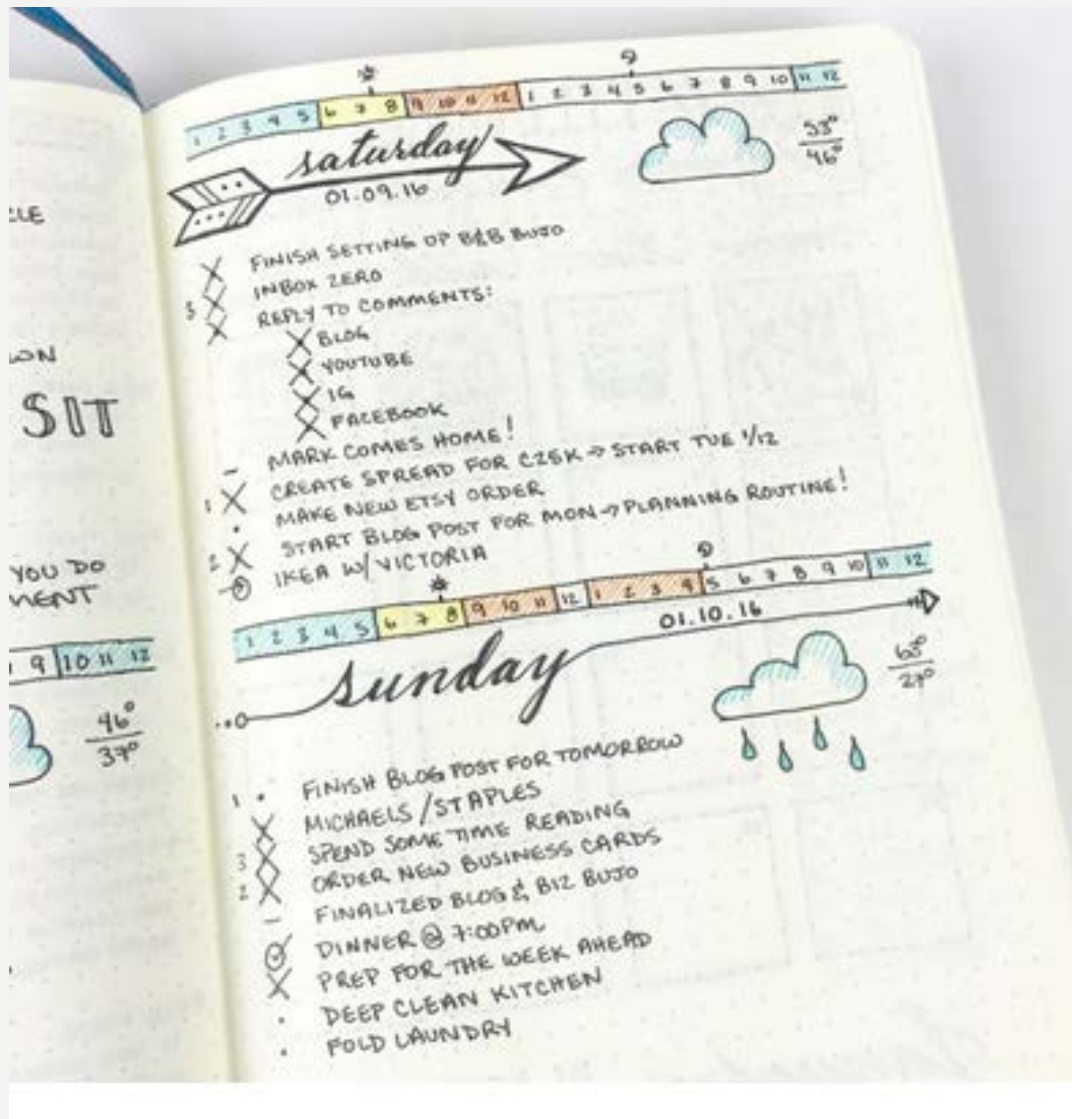 CLE
WN
SIT
YOU DO
MENT
9 10 11 12
46°
37°
1 2 3 4 5 6 7 8 9 10 11 12 1 2 3 4 5 6 7 8 9 10 11 12
saturday
01.09.16
53°
46°
X FINISH SETTING UP B&B BUJO
3 X INBOX ZERO
X REPLY TO COMMENTS:
X BLOG
X YOUTUBE
X IG
X FACEBOOK
– MARK COMES HOME!
1 X CREATE SPREAD FOR C25K → START TUE 1/12
• MAKE NEW ETSY ORDER
2 X START BLOG POST FOR MON → PLANNING ROUTINE!
IKEA W/ VICTORIA
1 2 3 4 5 6 7 8 9 10 11 12 1 2 3 4 5 6 7 8 9 10 11 12
01.10.16
sunday
63°
27°
1 • FINISH BLOG POST FOR TOMORROW
X MICHAELS / STAPLES
3 X SPEND SOME TIME READING
2 X ORDER NEW BUSINESS CARDS
– FINALIZED BLOG & BIZ BUJO
DINNER @ 7:00PM
X PREP FOR THE WEEK AHEAD
• DEEP CLEAN KITCHEN
• FOLD LAUNDRY